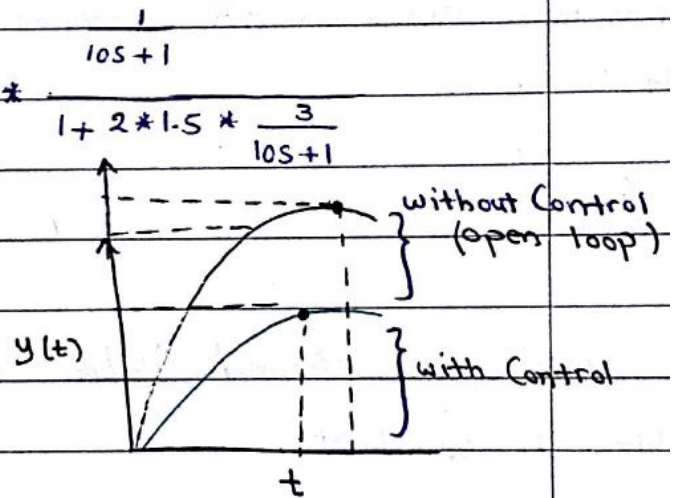 1
10s + 1
*
1 + 2 * 1.5 * 3
10s + 1
without Control
(open loop)
y(t)
with Control
t